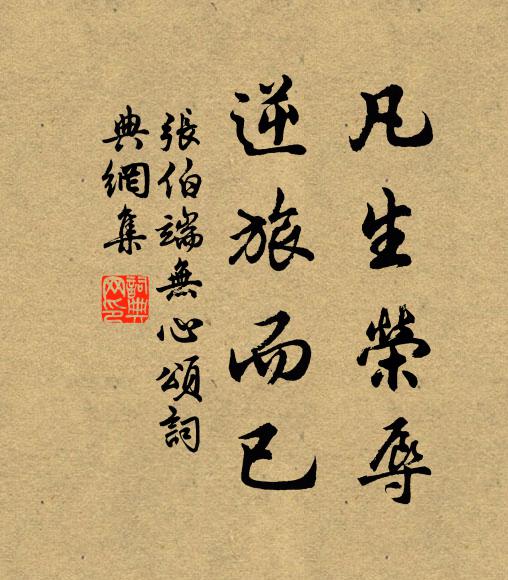 凡生榮辱
逆旅而已
張伯端無心頌詞
典網集
詞典
网印